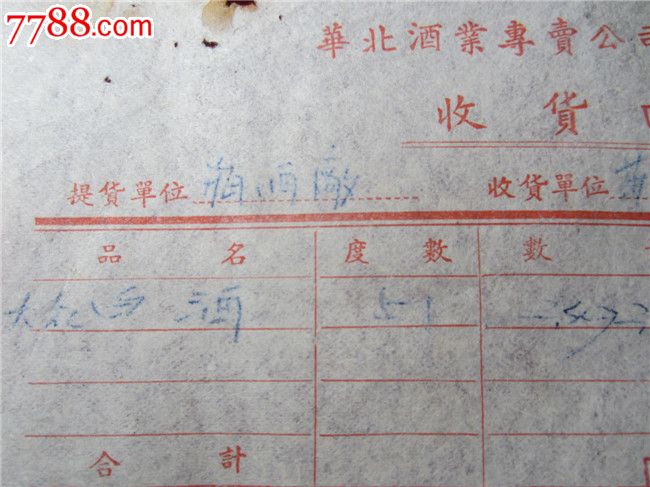 7788.com
華北酒業專賣公司
收貨
提貨單位 酒廠 收貨單位
品名 度數 數
白酒 51
合計